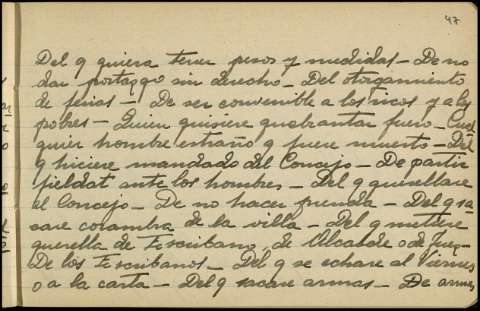 47
Del q quiera tener pesos y medidas — De no
dar portazgo sin derecho — Del otorgamiento
de ferias — De ser convenible a los ricos y a los
pobres — Quien quisiere quebrantar fuero — Cual
quier hombre estraño q fuere muerto — Del
q hiciere mandado del Concejo — De partir
fieldat ante los hombres — Del q querellare
el Concejo — De no hacer prenda — Del q sa
care corambra de la villa — Del q metiere
querella de Escribano, de Alcalde o de Juez —
De los Escribanos — Del q se echare al Viernes
o a la carta — Del q sacare armas — De armas